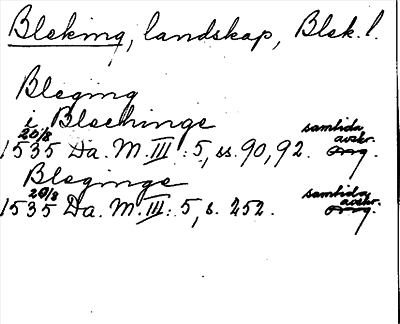 Bleking, landskap, Blek. l.
Bleging
i Blechinge
20/8 samtida avskr.
1535 Da. M. III: 5, ss. 90, 92. orig.
Bleginge
20/8 samtida avskr.
1535 Da. M. III: 5, s. 252. orig.